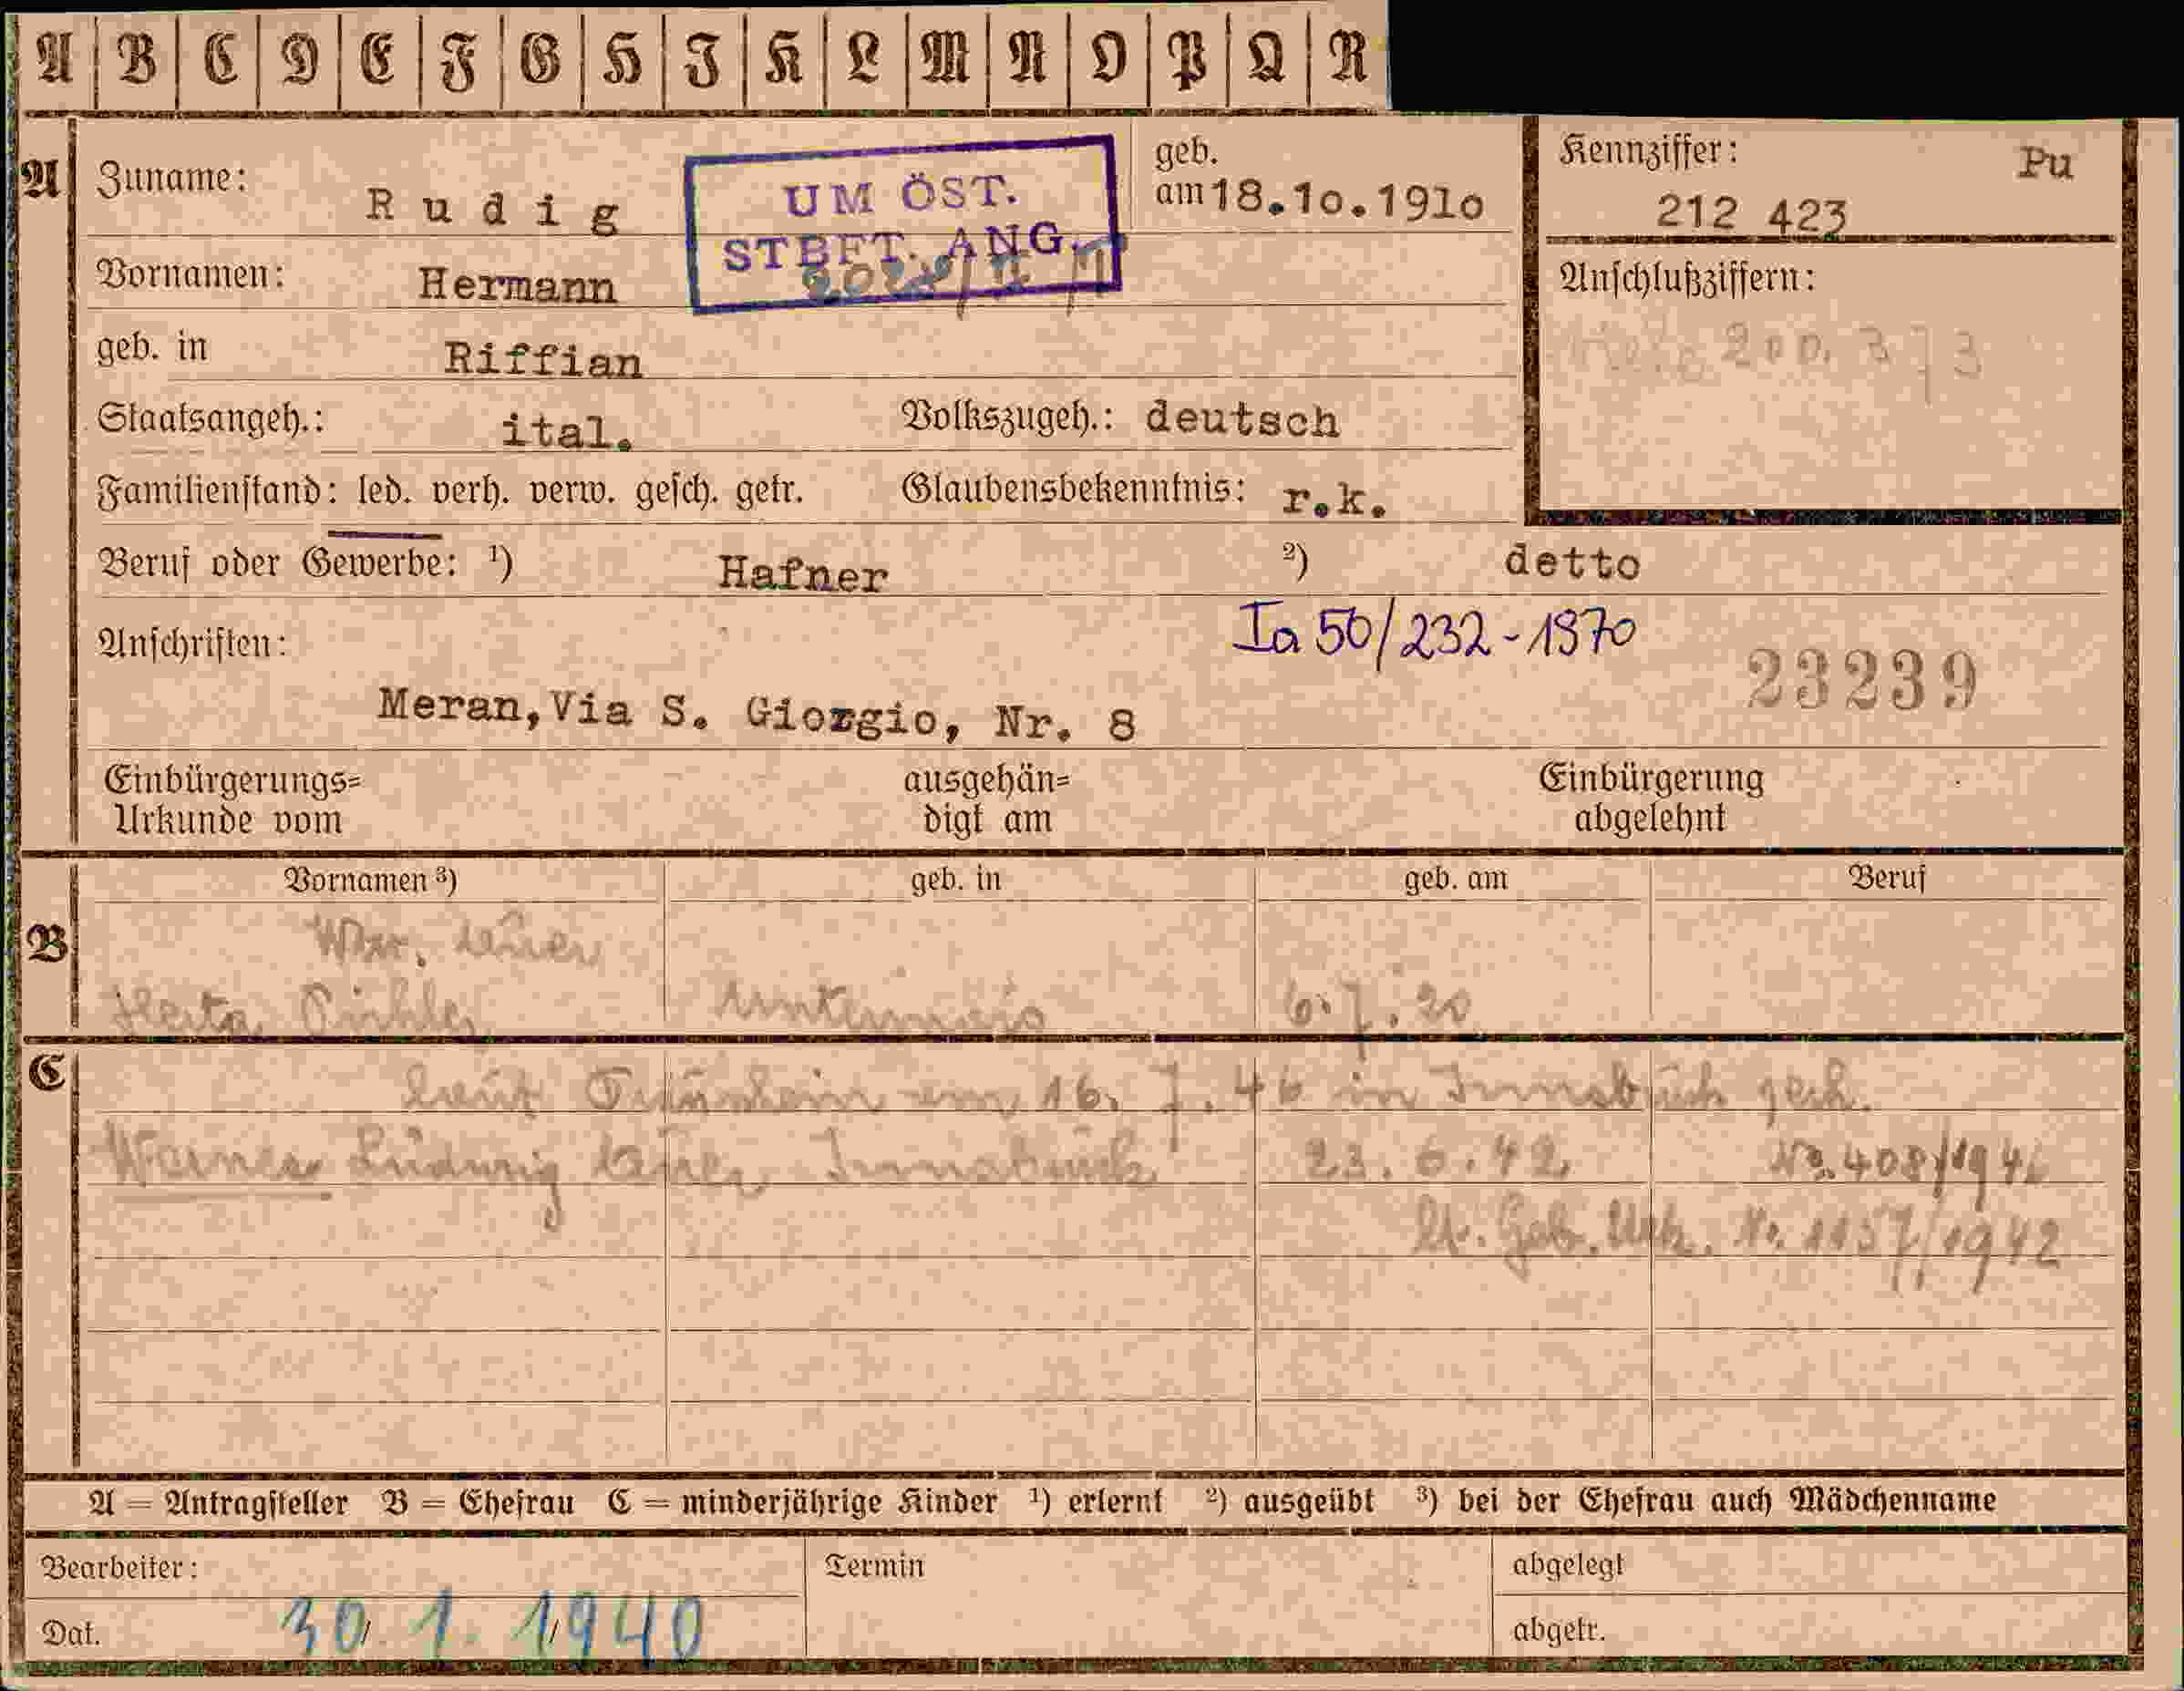 A B C D E F G H I K L M N O P Q R
A Zuname: Rudig
UM ÖST.
STBFT. ANG.
geb.
am 18.10.1910
Kennziffer: Pu
212 423
Vornamen: Hermann
Anschlußziffern:
200.373
geb. in Riffian
Staatsangeh.: ital. Volkszugeh.: deutsch
Familienstand: led. verh. verw. gesch. getr. Glaubensbekenntnis: r.k.
Beruf oder Gewerbe: ¹) Hafner ²) detto
Ia 50/232-1970
Anschriften:
23239
Meran, Via S. Giorgio, Nr. 8
Einbürgerungs=
Urkunde vom
ausgehän=
digt am
Einbürgerung
abgelehnt
Vornamen ³) geb. in geb. am Beruf
B
Herta Untermais 6.7.20
C
laut Trauschein am 16.7.46 in Innsbruck
Werner Ludwig Innsbruck 23.6.42 No. 408/1946
lt. Geb. Urk. No. 1157/1942
A = Antragsteller B = Ehefrau C = minderjährige Kinder ¹) erlernt ²) ausgeübt ³) bei der Ehefrau auch Mädchenname
Bearbeiter: Termin abgelegt
Dat. 30. 1. 1940 abgetr.